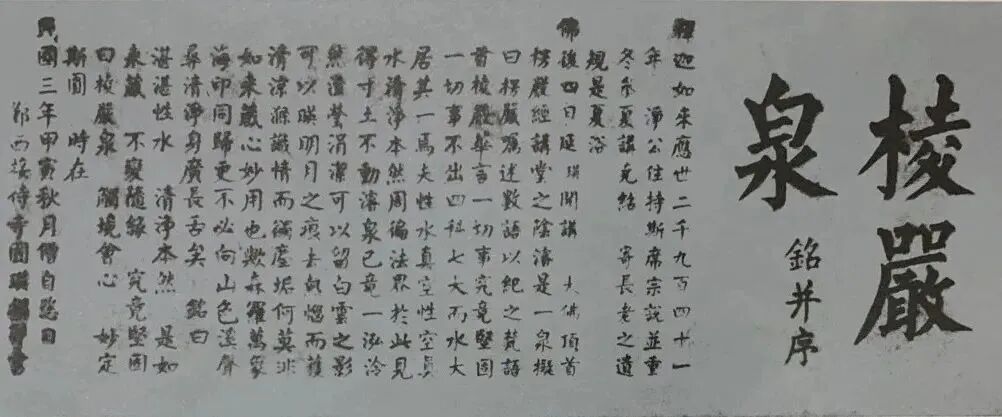 棱嚴
泉
銘并序
釋迦如來應世二千九百四十一
年 淨公住持斯席宗說並重
冬參夏講克結 寄長老之遺
規是夏浴
佛後四日延瑛開講 大佛頂首
楞嚴經講堂之陰濬是一泉擬
曰楞嚴囑述數語以紀之梵語
首棱嚴華言一切事究竟堅固
一切事不出四科七大而水大
居其一焉夫性水真空性空真
水清淨本然周徧法界於此見
得寸土不動濬泉已竟一泓泠
然澄瑩涓潔可以留白雲之影
可以暎明月之痕去熱惱而獲
清涼滌識情而塵垢何莫非
如來藏心妙用也歟森羅萬象
海印同歸更不必向山色溪聲
尋清淨身廣長舌矣 銘曰
湛湛性水 清淨本然 是如
來藏 不變隨緣 究竟堅固
曰棱嚴泉 觸境會心 妙定
斯圓 時在
民國三年甲寅秋月僧自恣日
鄞西接待寺圓瑛